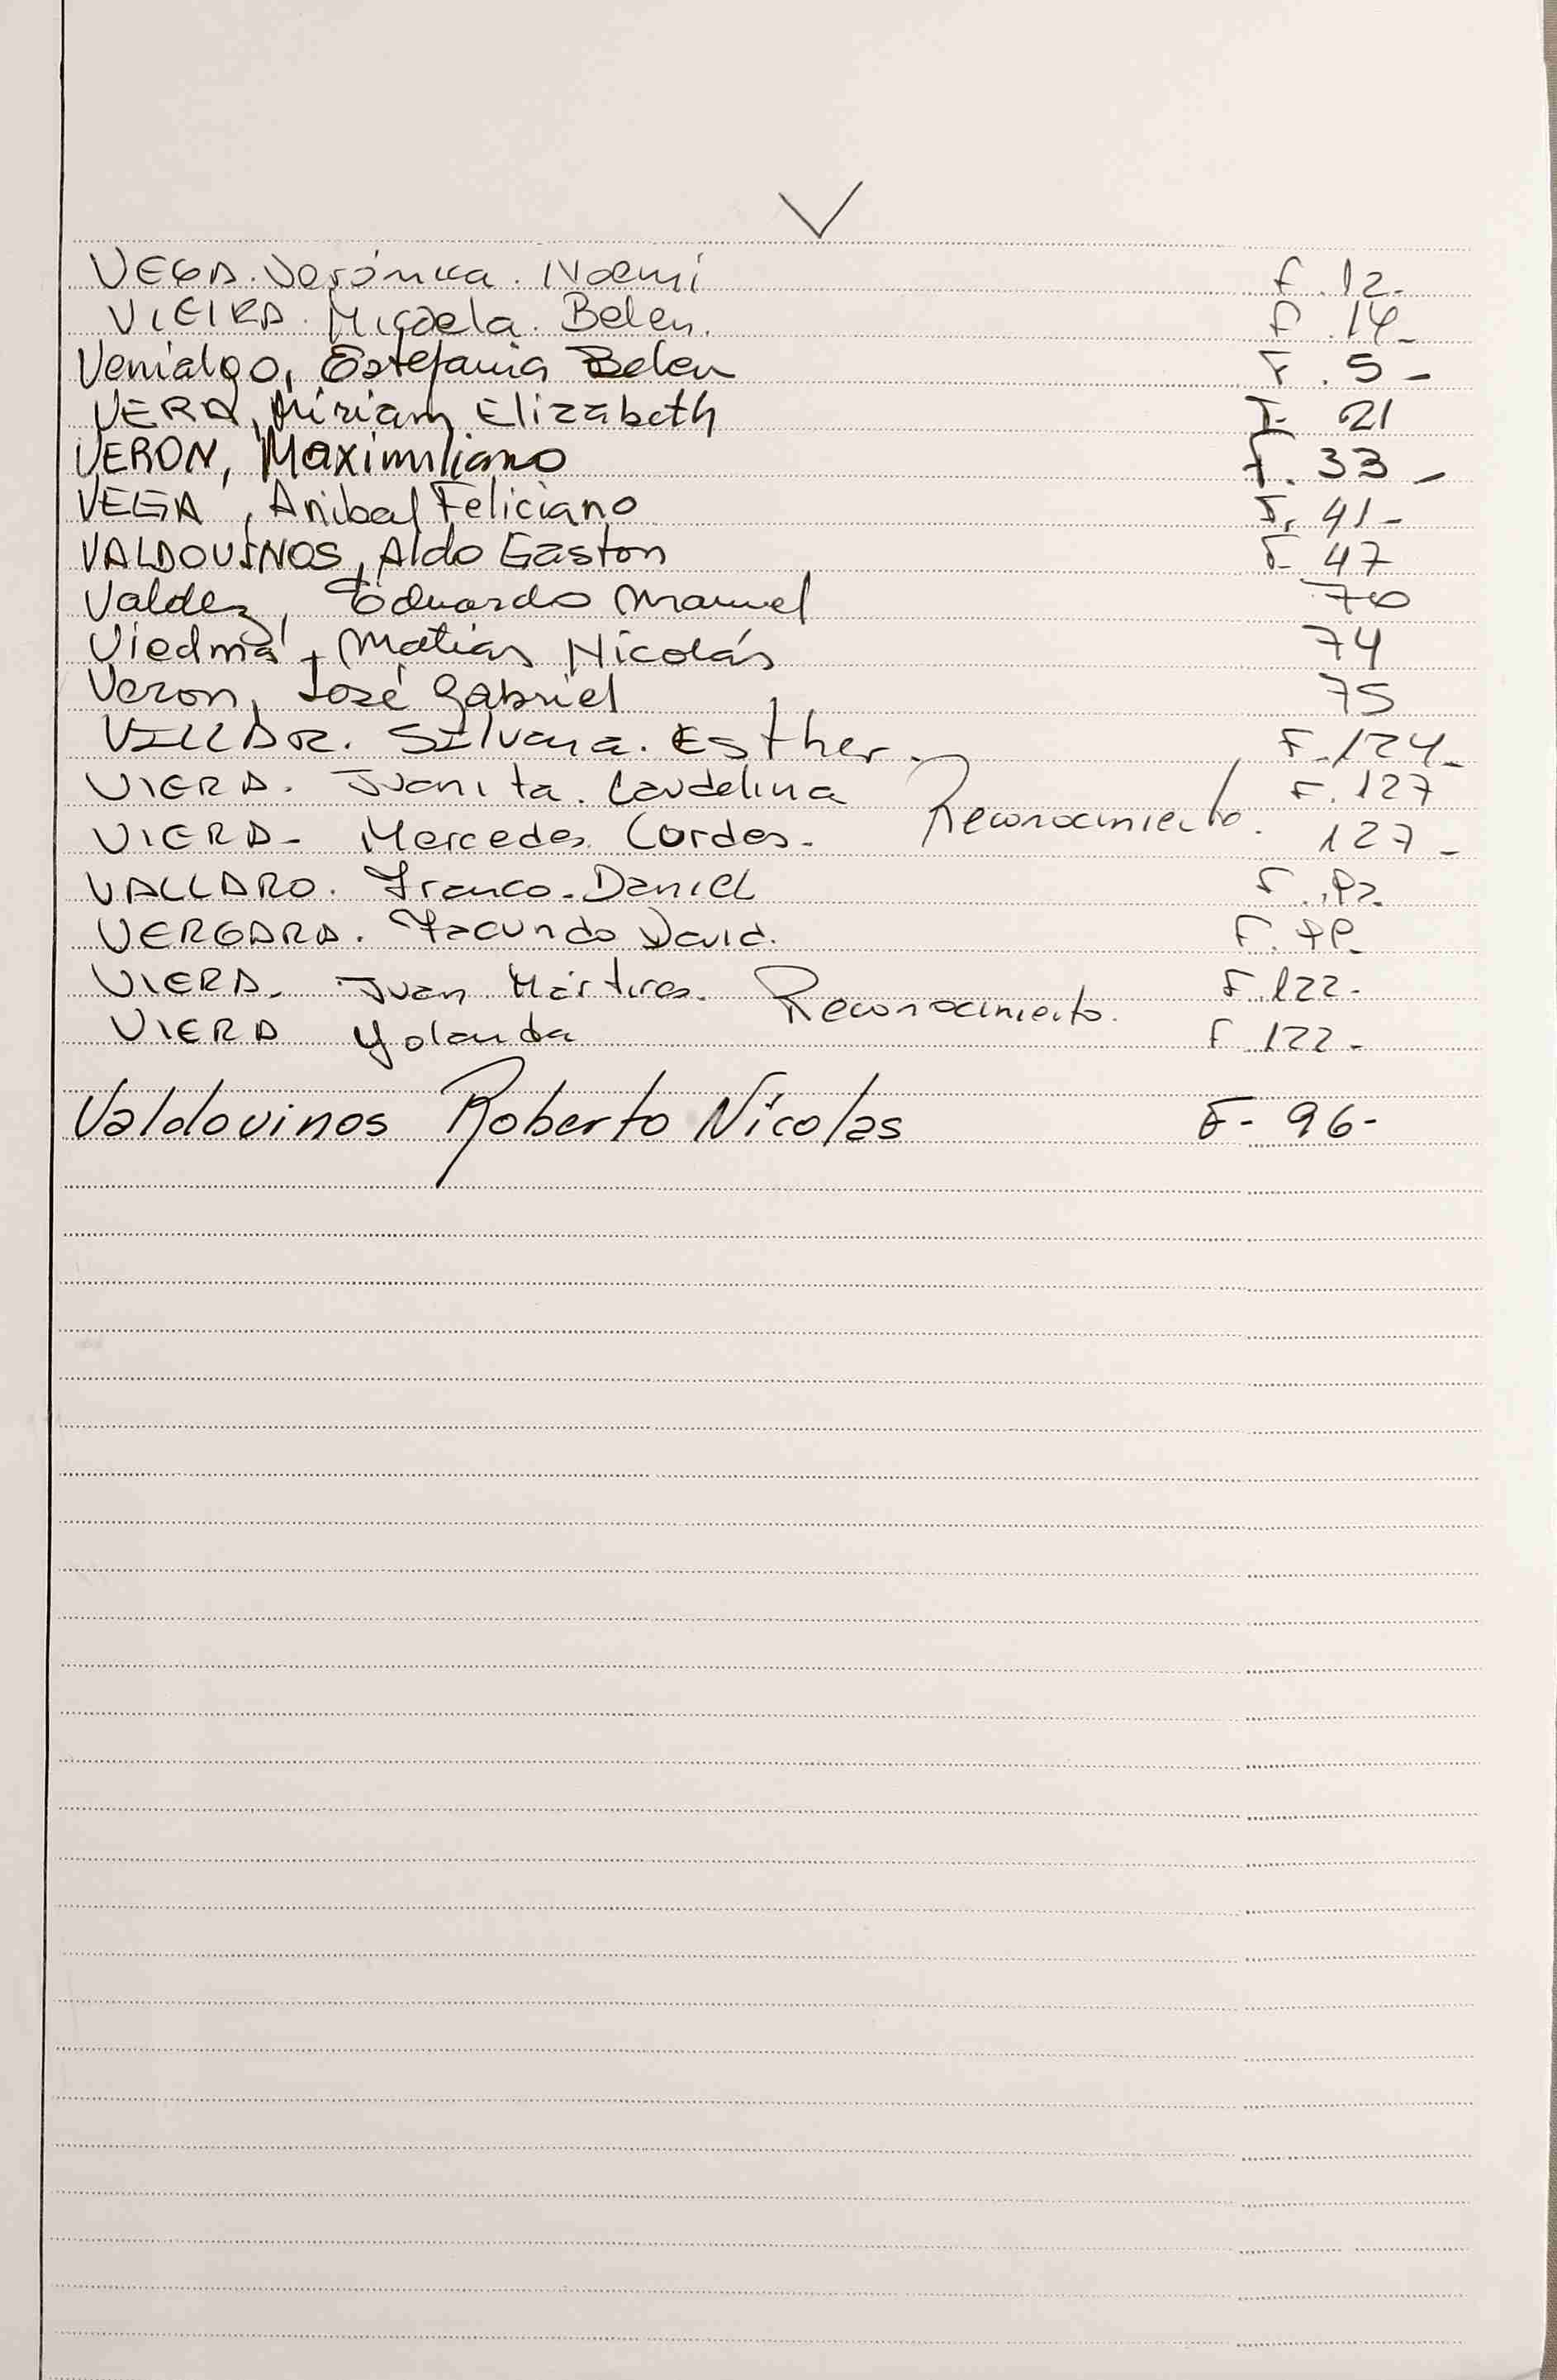 V
VEGA. Verónica. Noemi F. 12-
VIEIRA. Micaela. Belen. F. 14-
Venialgo, Estefania Belen F. 5-
VERA, Miriam Elizabeth F- 21
VERON, Maximiliano F. 33-
VEGA, Anibal Feliciano F. 41-
VALDOVINOS, Aldo Gaston F- 47
Valdez, Eduardo Manuel 70
Viedma, Matias Nicolás 74
Veron, José Gabriel 75
VILLAR. Silvana. Esther. F. 124-
VIERA. Juanita. Caudelina F. 127
Reconocimiento.
VIERA- Mercedes Lordes. 127-
VALLARO. Franco. Daniel F.
VERGARA. Facundo David. F.
VIERA. Juan Mártires. Reconocimiento. F. 122-
VIERA Yolanda F 122-
Valdovinos Roberto Nicolas F- 96-